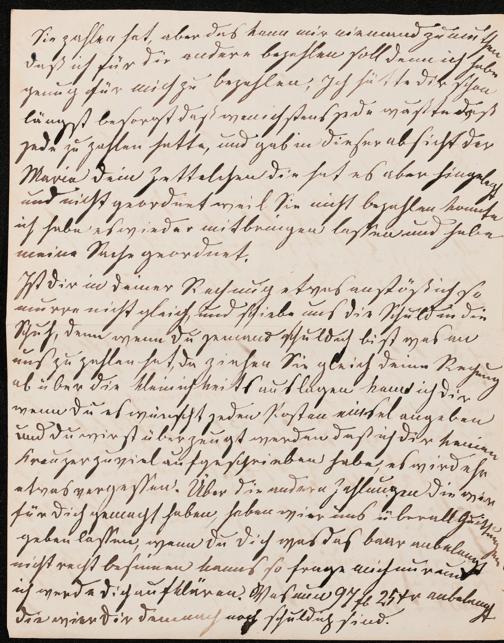 Sie zahlen hat, aber das kann mir niemand zumuthen
daß ich für die andere bezahlen soll denn ich habe
genug für mich zu bezahlen; Ich hätte dir schon
längst besorgt daß wenichstens jede wüßte was
jede zu zahlen hatte, und gab in dieser absicht der
Maria dein Zettelchen die hat es aber hingelegt
und nicht geordnet weil Sie nicht bezahlen konnte
ich habe es wieder mitbringen lassen und habe
meine Sache geordnet.
Ist dir in deiner Rechnug etwas anstößich so
murre nicht gleich und schiebe uns die Schuld in die
Schuh, denn wenn du jemand schuldich bist was an
uns zu zahlen hat, da ziehen Sie gleich deine Rechnug
ab über die kleinichkeits auslagen kann ich dir
wenn du es wünscht jeden Kosten einsel angeben
und du wirst überzeugt werden daß ich dir keinen
Kreuzer zuviel aufgeschrieben habe, es wird ehr
etwas vergessen. Über die andern Zahlungen die wier
für dich gemagt haben, haben wier uns überall Quittungen
geben lassen, wenn du dich was das baar anbelangt
nicht recht besinnen kanns so frage mich nur und
ich werde dich aufklären. Was nun 97 fl 25 kr anbelangt
die wier dir demnach noch schuldich sind.